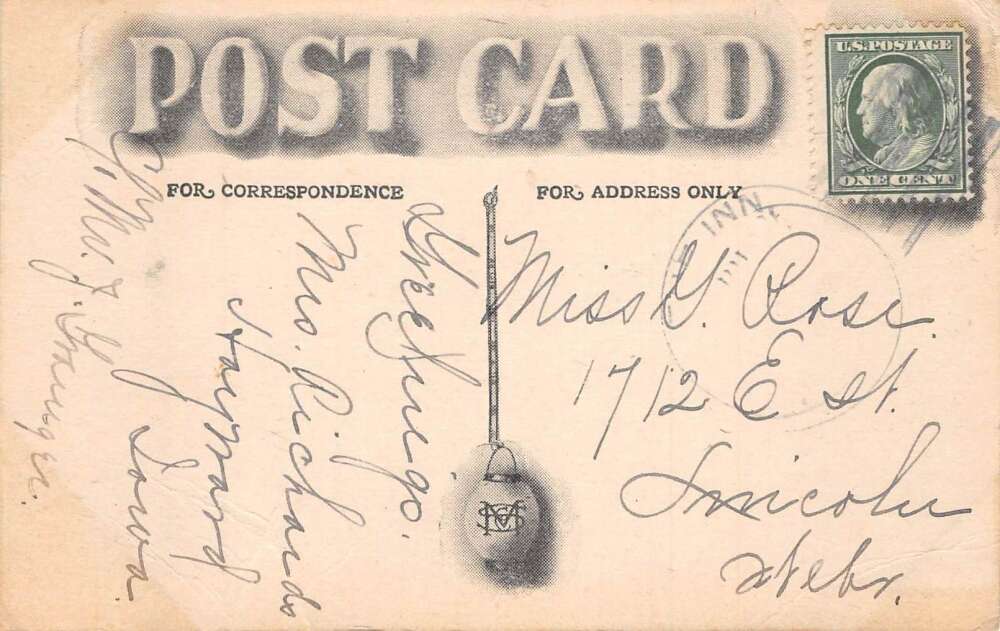 POST CARD
U.S. POSTAGE
ONE CENT
FOR CORRESPONDENCE
FOR ADDRESS ONLY
INN.
Greetings.
Mrs. Richards
Iowa.
Miss G. Rose.
1712 E St.
Lincoln
Nebr.